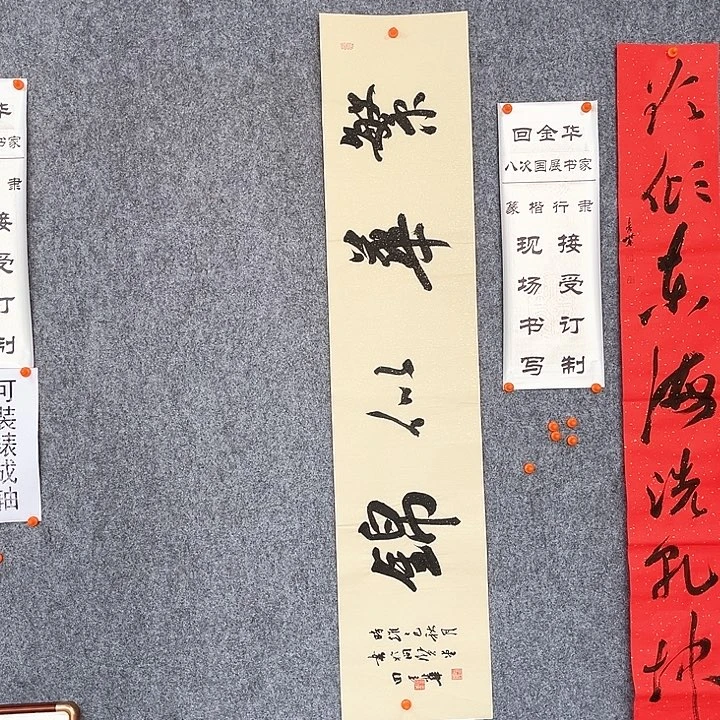 华
书家
隶
接受订制
可装裱成轴
繁華似錦
回金华
八次国展书家
篆楷行隶
现场书写
接受订制
欲倾东海洗乾坤